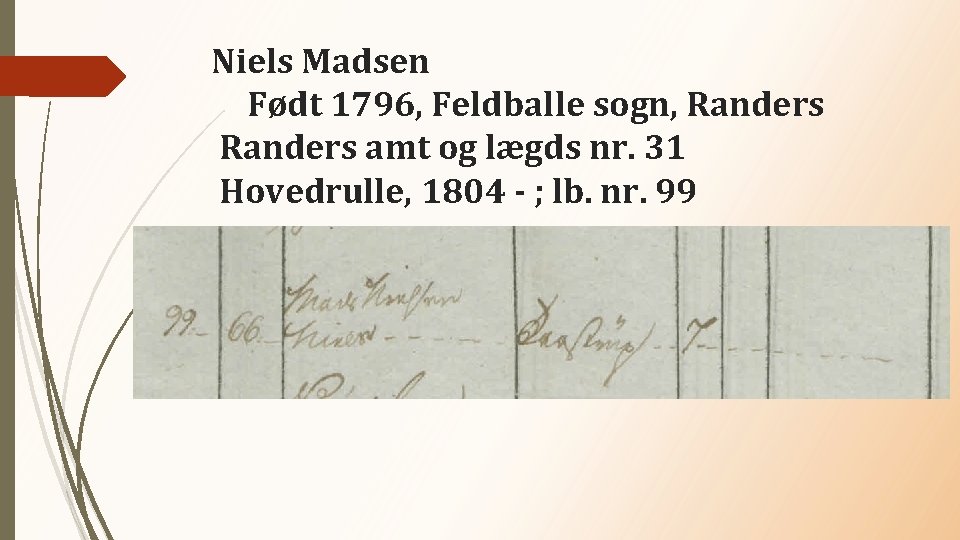 Niels Madsen
Født 1796, Feldballe sogn, Randers
Randers amt og lægds nr. 31
Hovedrulle, 1804 - ; lb. nr. 99
Mads
99. 66. 7